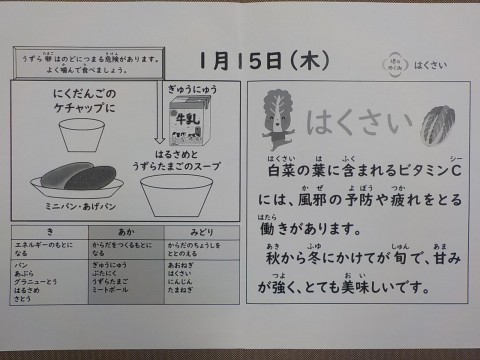 うずら卵はのどにつまる危険があります。
よく噛んで食べましょう。
1月15日(木)
はくさい
にくだんごの
ケチャップに
ぎゅうにゅう
牛乳
はるさめと
うずらたまごのスープ
ミニパン・あげパン
き
あか
みどり
エネルギーのもとに
なる
からだをつくるもとに
なる
からだのちょうしを
ととのえる
パン
あぶら
グラニューとう
はるさめ
さとう
ぎゅうにゅう
ぶたにく
うずらたまご
ミートボール
あおねぎ
はくさい
にんじん
たまねぎ
はくさい
白菜の葉に含まれるビタミンC
には、風邪の予防や疲れをとる
働きがあります。
秋から冬にかけてが旬で、甘み
が強く、とても美味しいです。